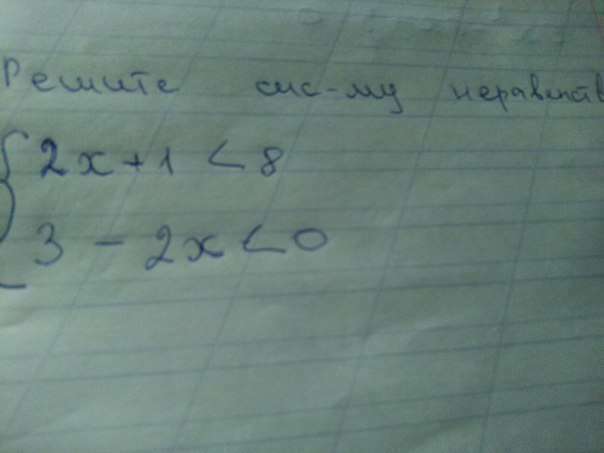 Решите сис-му неравенств
2x+1 < 8
3 - 2x < 0